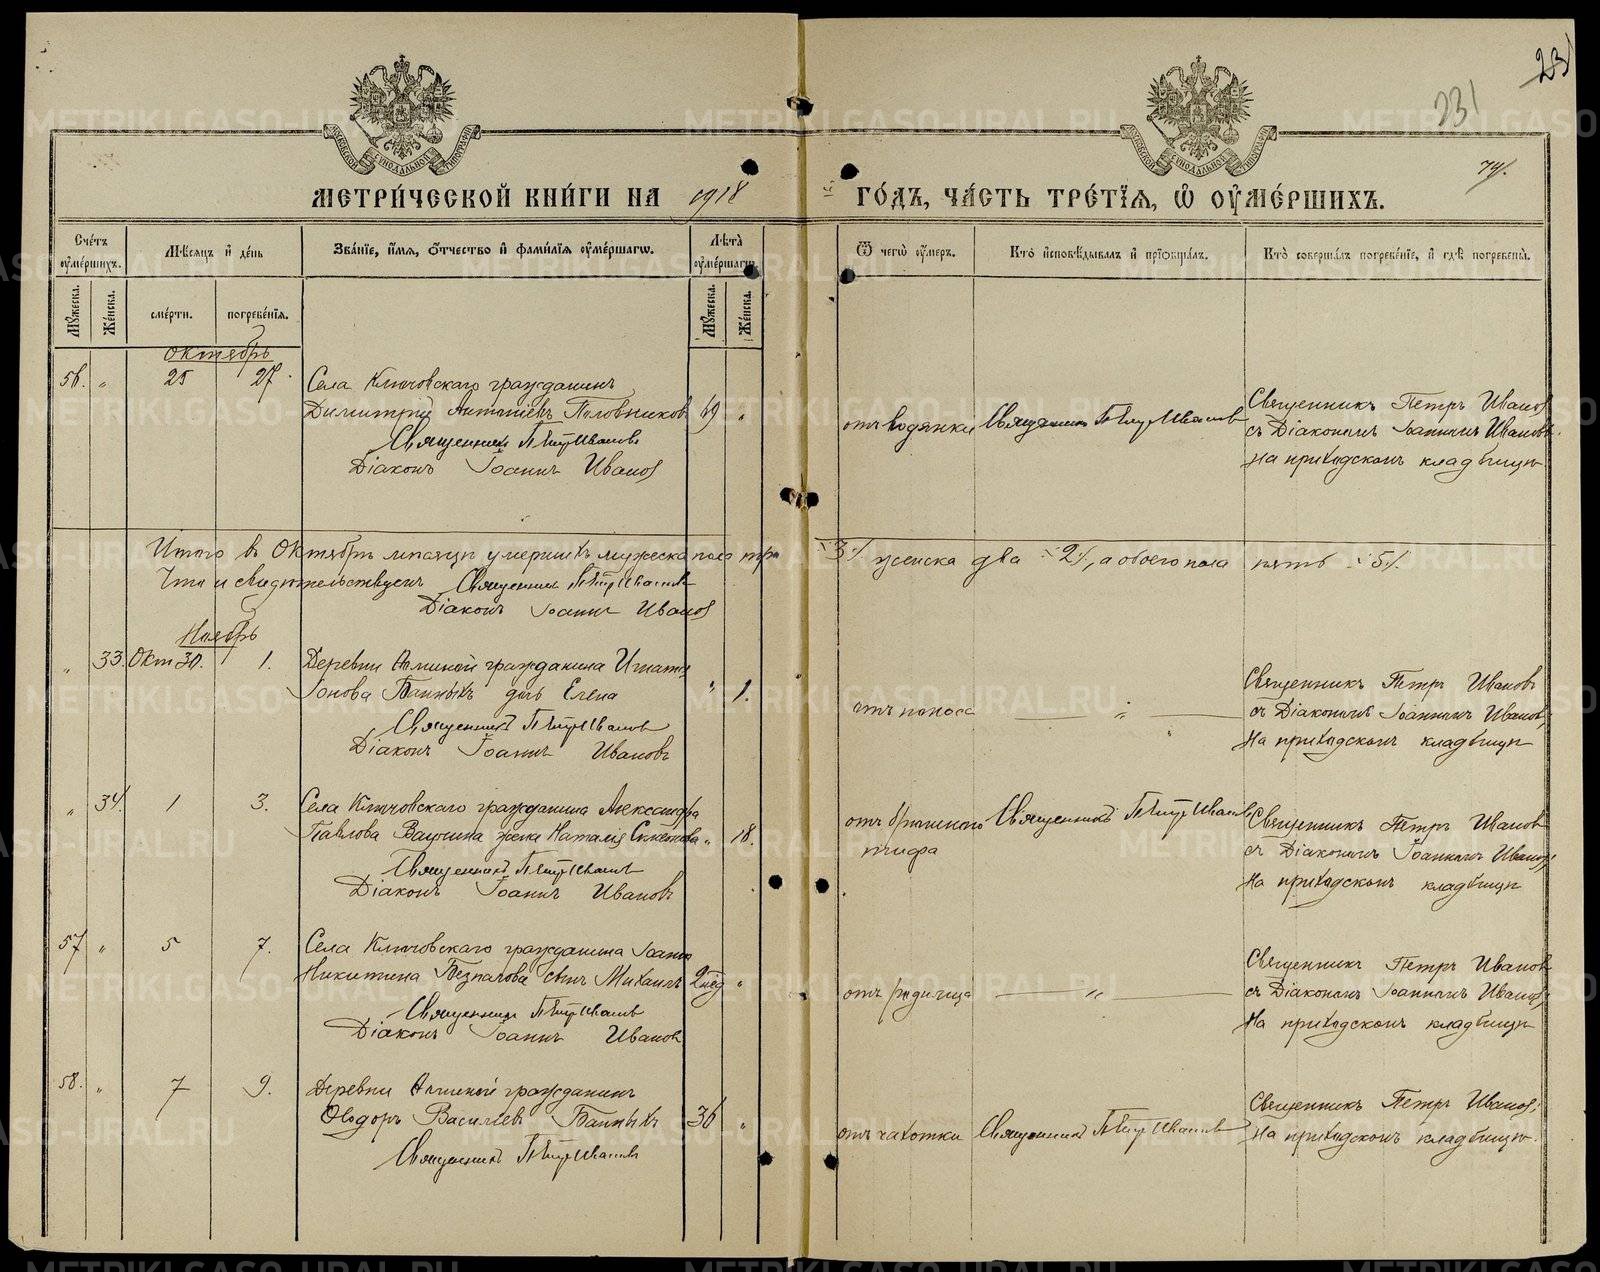 23
231
74.
МЕТРИ́ЧЕСКОЙ КНИ́ГИ НА 1918 ГО́ДЪ, ЧА́СТЬ ТРЕ́ТЇѦ, Ѡ ОУ҆МЕ́РШИХЪ.
Сче́тъ оу҆ме́ршихъ.
Мѣ́сѧцъ и҆ де́нь
Зва́нїе, и҆́мѧ, ѻ҆́тчество и҆ фами́лїѧ оу҆ме́ршагѡ.
Лѣ́та оу҆ме́ршагѡ.
Ѿ чегѡ̀ оу҆́меръ.
Кто̀ и҆сповѣ́дывалъ и҆ прїѡбща́лъ.
Кто̀ соверша́лъ погребе́нїе, и҆ гдѣ̀ погребены̀.
Мꙋ́жеска.
Же́нска.
сме́рти.
погребе́нїѧ.
Мꙋ́жеска.
Же́нска.
Октябрь
56. " 25 27. Села Ключовскаго гражданинъ
Димитрій Антоніевъ Половниковъ 69 "
Священникъ Петръ Ивановъ
Діаконъ Іоаннъ Ивановъ
отъ водянки Священникъ Петръ Ивановъ
Священникъ Петръ Ивановъ
съ Діакономъ Іоанномъ Ивановъ.
На приходскомъ кладбищѣ
Итого въ Октябрѣ мѣсяцѣ умершихъ мужеска пола три 3, женска два 2, а обоего пола пять 5.
Что и свидѣтельствуемъ Священникъ Петръ Ивановъ
Діаконъ Іоаннъ Ивановъ
Ноябрь
" 33. Окт 30. 1. Деревни гражданина Игнатія
Іонова Банныхъ дочь Елена " 1.
Священникъ Петръ Ивановъ
Діаконъ Іоаннъ Ивановъ
отъ поноса "
Священникъ Петръ Ивановъ
съ Діакономъ Іоанномъ Ивановъ,
На приходскомъ кладбищѣ
" 34. 1 3. Села Ключовскаго гражданина Александра
Павлова жена Наталія " 18.
Священникъ Петръ Ивановъ
Діаконъ Іоаннъ Ивановъ
отъ брюшного
тифа
Священникъ Петръ Ивановъ
Священникъ Петръ Ивановъ
съ Діакономъ Іоанномъ Ивановъ,
На приходскомъ кладбищѣ
57 " 5 7. Села Ключовскаго гражданина Іоанна
Никитина Безпалова сынъ Михаилъ 2 нед "
Священникъ Петръ Ивановъ
Діаконъ Іоаннъ Ивановъ
отъ родимца "
Священникъ Петръ Ивановъ
съ Діакономъ Іоанномъ Ивановъ,
На приходскомъ кладбищѣ
58. " 7 9. Деревни гражданинъ
Ѳеодоръ Василіевъ Банныхъ 36 "
Священникъ Петръ Ивановъ
отъ чахотки Священникъ Петръ Ивановъ
Священникъ Петръ Ивановъ,
На приходскомъ кладбищѣ.
METRIKI.GASO-URAL.RU